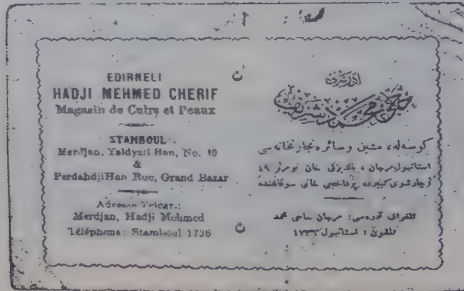 EDIRNELI
HADJI MEHMED CHERIF
Magasin de Cuirs et Peaux
STAMBOUL
Merdjan, Yaldyzli Han, No. 49
&
PerdahdjiHan Rue, Grand Bazar
Adresse Telegr.:
Merdjan, Hadji Mehmed
Téléphone: Stamboul 1736
ادرنه لی
حاجی محمد شریف
كوسه له، مشین وسائره تجارتخانه سی
استانبول مرجان ، يالديزلی خان نومرو ٤٩
و چارشوی كبيرده پرداخجی خانی سوقاغنده
تلغراف آدره سی: مرجان حاجی محمد
تلفون : استانبول ١٧٣٦